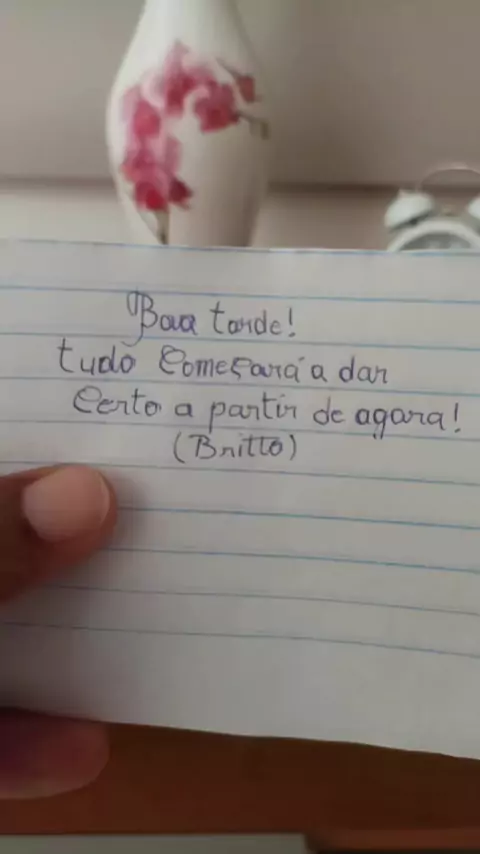 Boa tarde!
tudo começará a dar
certo a partir de agora!
(Britto)